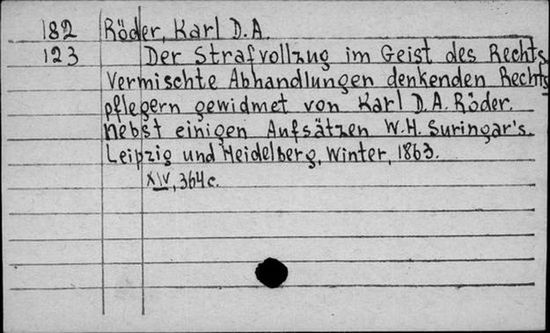 182 Röder, Karl D.A.
123 Der Strafvollzug im Geist des Rechts
Vermischte Abhandlungen denkenden Rechts
pflegern gewidmet von Karl D.A. Röder.
nebst einigen Aufsätzen W.H. Suringar's.
Leipzig und Heidelberg, Winter, 1863.
XIV, 364 c.